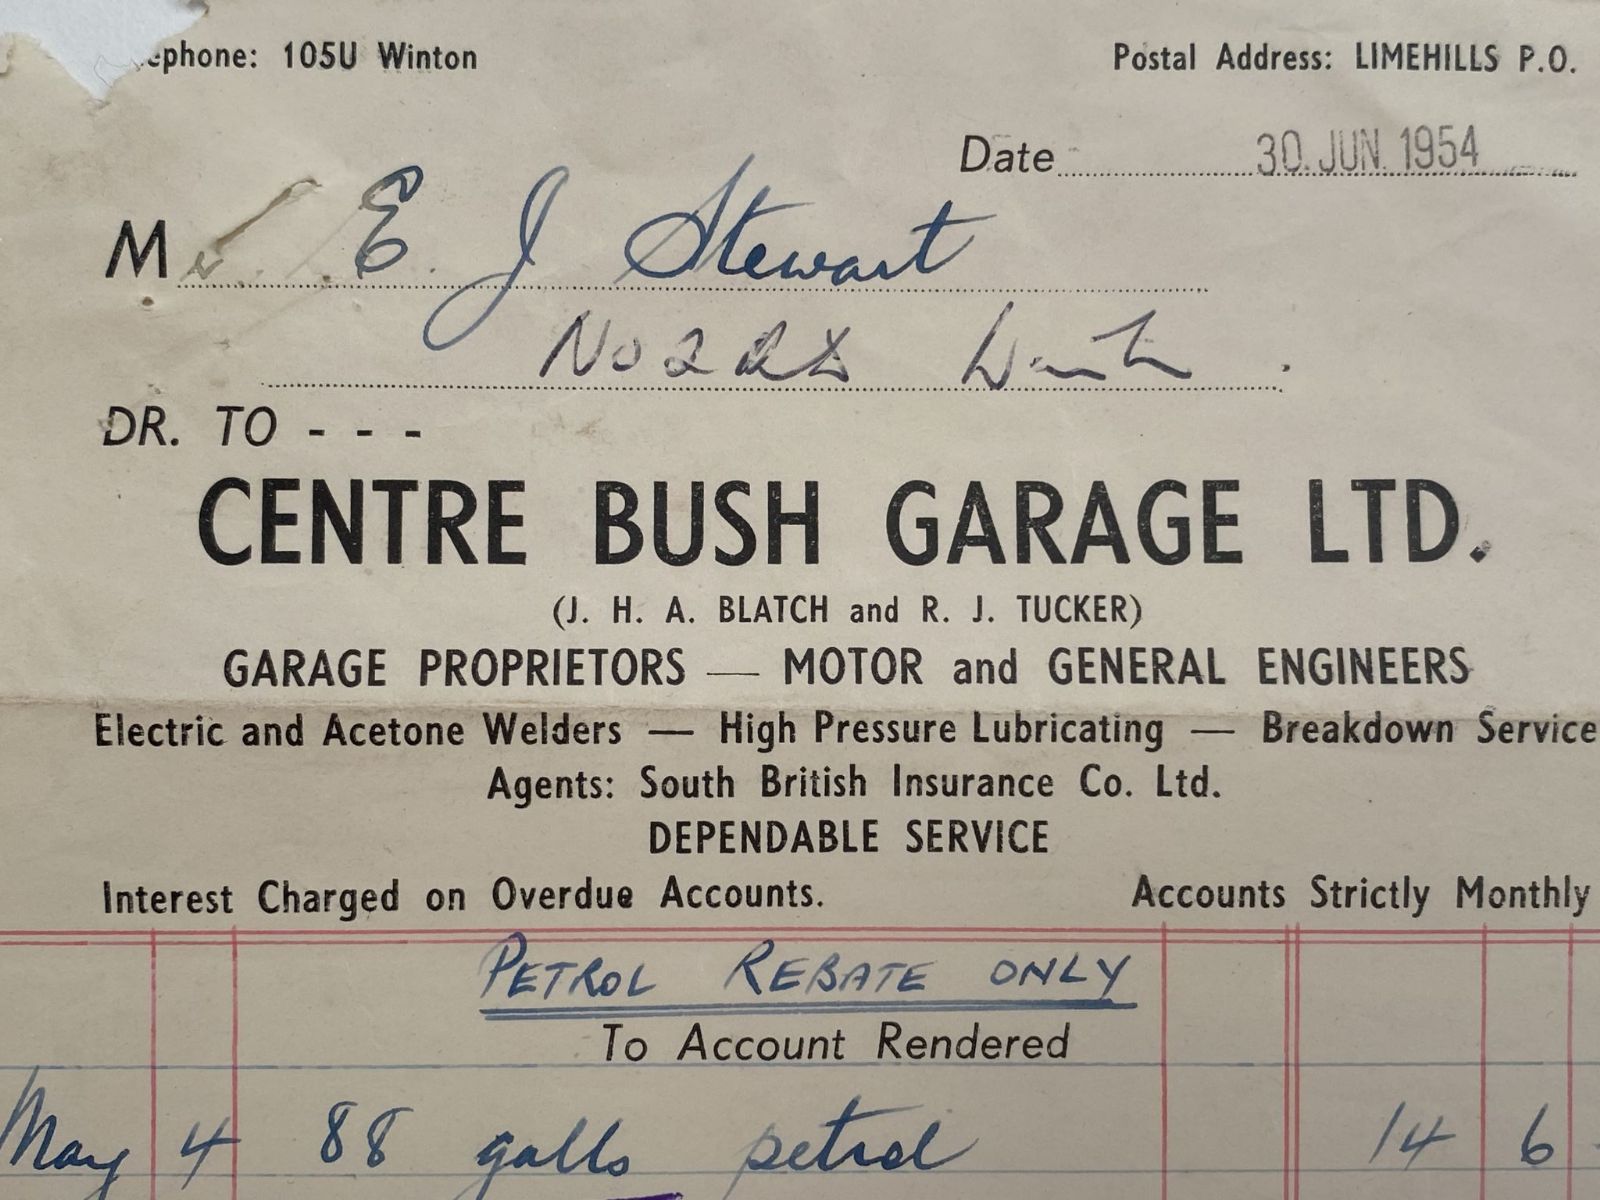 ephone: 105U Winton
Postal Address: LIMEHILLS P.O.
Date 30. JUN. 1954
Mr. E. J Stewart
No 2 RD Winton.
DR. TO - - -
CENTRE BUSH GARAGE LTD.
(J. H. A. BLATCH and R. J. TUCKER)
GARAGE PROPRIETORS — MOTOR and GENERAL ENGINEERS
Electric and Acetone Welders — High Pressure Lubricating — Breakdown Service
Agents: South British Insurance Co. Ltd.
DEPENDABLE SERVICE
Interest Charged on Overdue Accounts. Accounts Strictly Monthly
PETROL REBATE ONLY
To Account Rendered
May 4 88 galls petrol 14 6